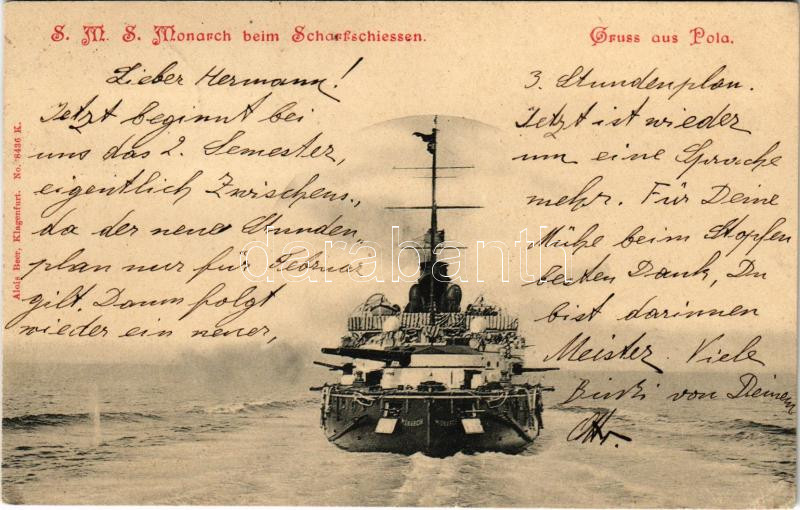 S. M. S. Monarch beim Scharfschiessen.
Gruss aus Pola.
Alois Beer, Klagenfurt. No. 8436 K.
Lieber Hermann!
Jetzt beginnt bei
uns das 2. Semester,
eigentlich Zwischens.,
da der neue Stunden„
plan nur für Februar
gilt. Dann folgt
wieder ein neuer,
3. Stundenplan.
Jetzt ist wieder
um eine Sprache
mehr. Für Deine
Mühe beim Stopfen
besten Dank, Du
bist darinnen
Meister. Viele
von Deinem
Otto.
MONARCH
MONARCH
darabanth